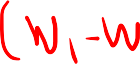 (w₁-w